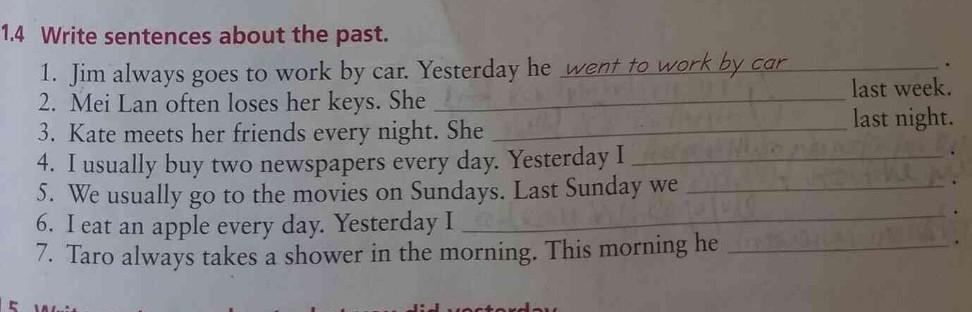 1.4 Write sentences about the past.
1. Jim always goes to work by car. Yesterday he went to work by car.
2. Mei Lan often loses her keys. She last week.
3. Kate meets her friends every night. She last night.
4. I usually buy two newspapers every day. Yesterday I .
5. We usually go to the movies on Sundays. Last Sunday we .
6. I eat an apple every day. Yesterday I .
7. Taro always takes a shower in the morning. This morning he .
did yesterday